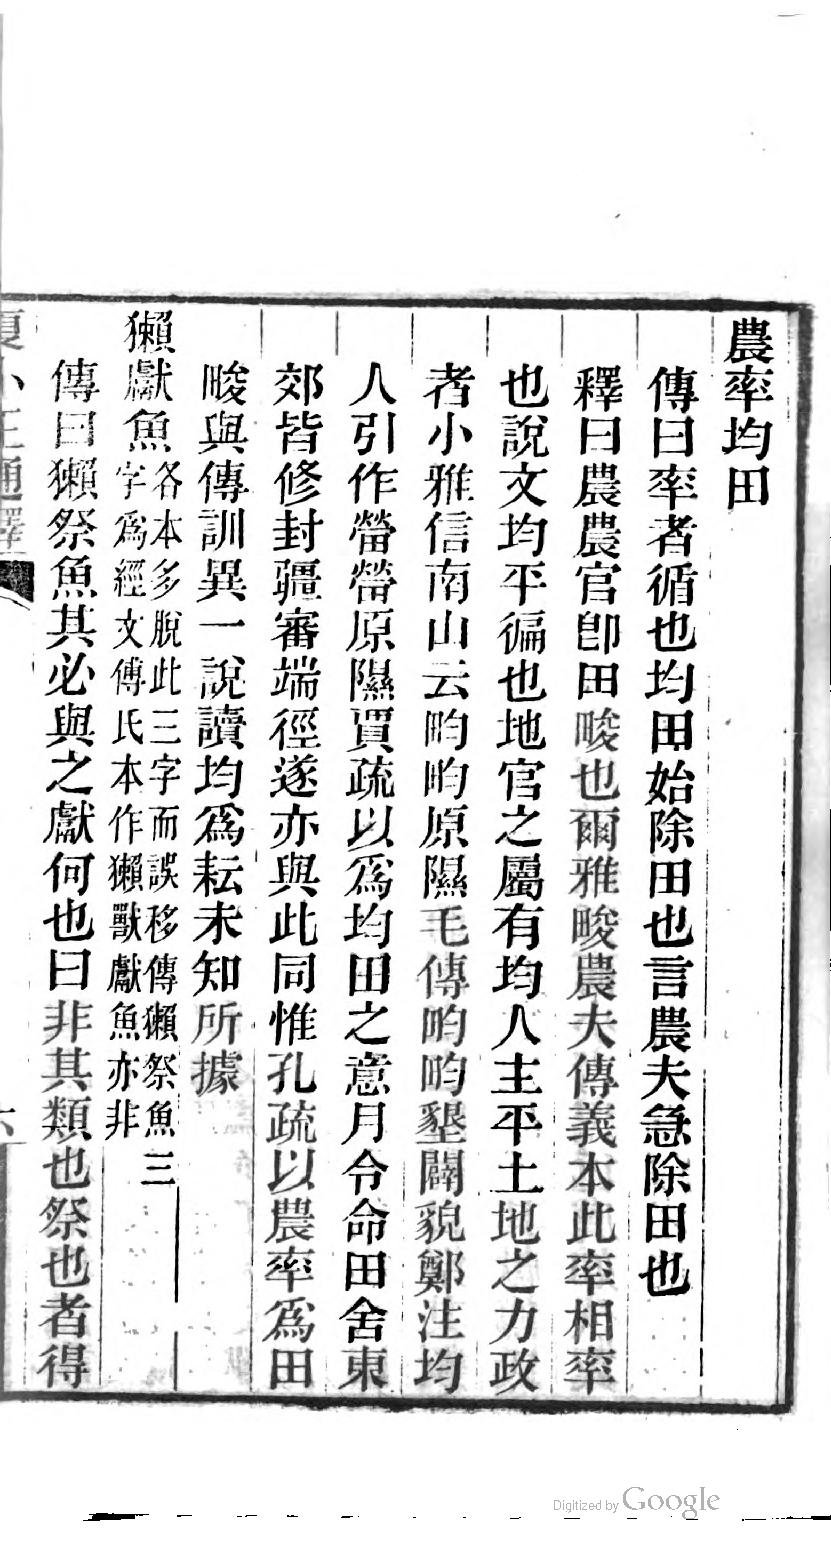 農率均田
傳曰率者循也均田始除田也言農夫急除田也
釋曰農農官卽田畯也爾雅畯農夫傳義本此率相率
也說文均平徧也地官之屬有均人主平土地之力政
者小雅信南山云畇畇原隰毛傳畇畇墾闢貌鄭注均
人引作㽦㽦原隰賈疏以爲均田之意月令命田舍東
郊皆修封疆審端徑遂亦與此同惟孔疏以農率爲田
畯與傳訓異一說讀均爲耘未知所據
獺獻魚各本多脫此三字而誤移傳獺祭魚三
字爲經文傅氏本作獺獸獻魚亦非
傳曰獺祭魚其必與之獻何也曰非其類也祭也者得
夏小正通釋
六
Digitized by Google